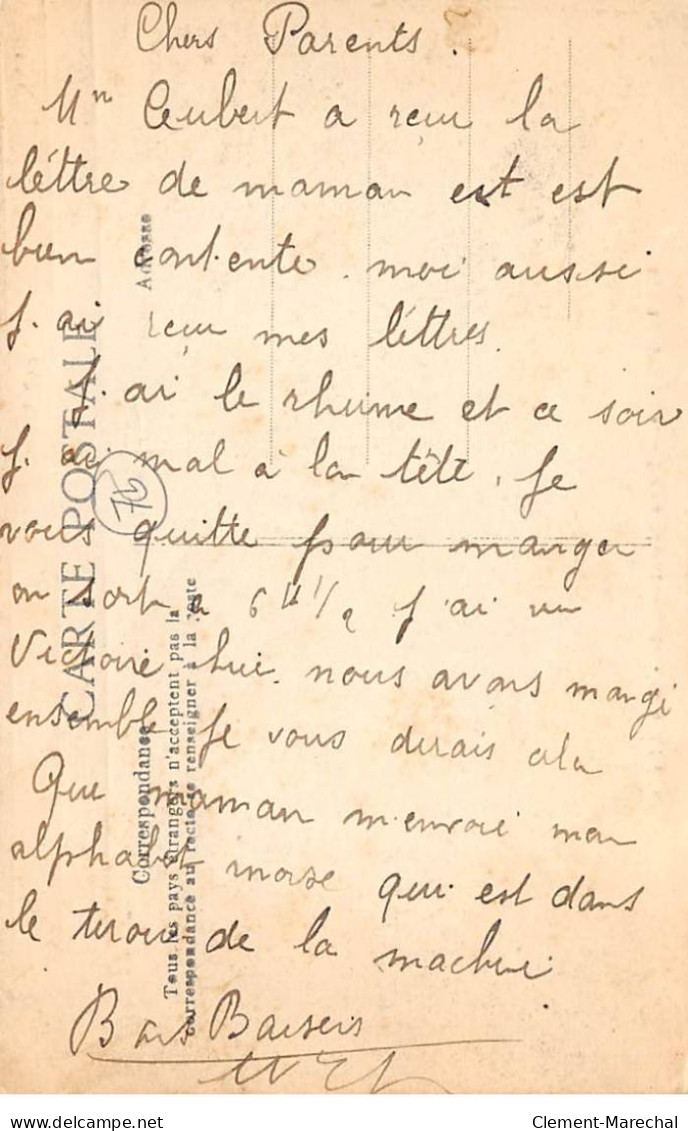 Chers Parents.
Mn Aubert a reçu la
léttre de maman est est
bien contente. moi aussi
j. ai reçu mes léttres.
j. ai le rhume et ce soir
j. ai mal à la tête. Je
vous quitte pour manger
on sort a 6 h 1/2 j'ai vu
Victoire hui nous avons mangé
ensemble Je vous dirais
Que maman m'envoie mon
alphabet morse qui est dans
le tiroir de la machine
Bons Baisers
CARTE POSTALE
Correspondance
Adresse
Tous les pays étrangers n'acceptent pas la
correspondance au recto se renseigner à la Poste
76
delcampe.net
Clement-Marechal